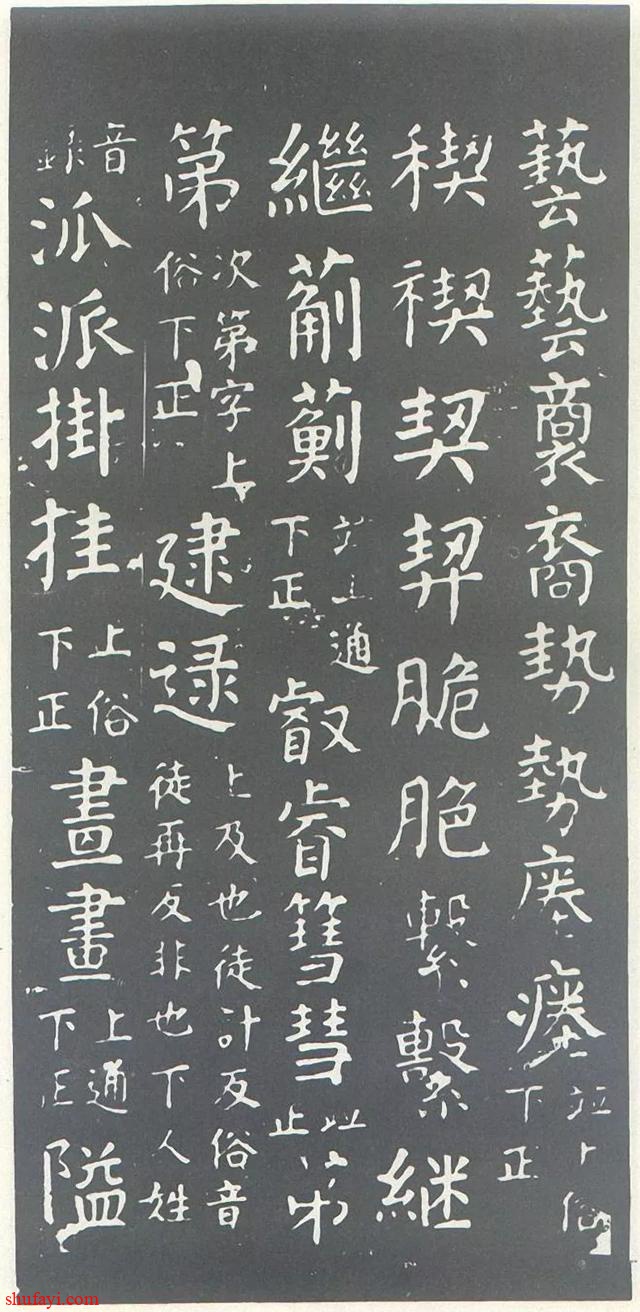 藝藝裔勢勢瘞瘞並上俗下正
稧禊契脆脃繋繫継
繼葪薊並上通下正叡睿篲彗並正弟
第次第字上俗下正逮逯上及也徒計反俗音徒再反非也下人姓
音録泒派掛挂上俗下正畫畫上通下正隘
shufayi.com